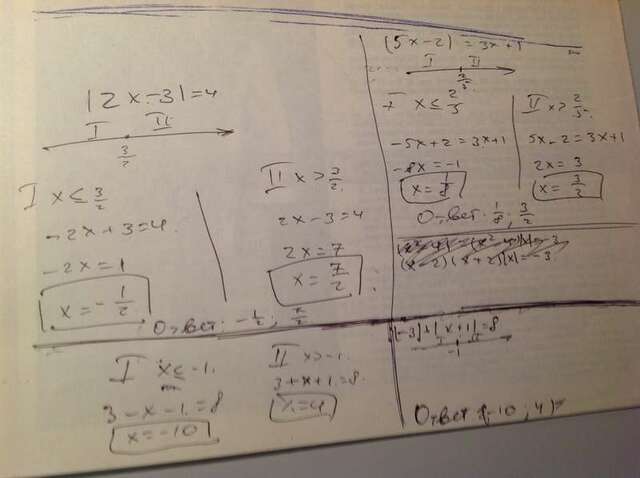 |2x-3|=4
I II
3/2
I x ≤ 3/2
-2x+3=4
-2x=1
x=-1/2
II x > 3/2
2x-3=4
2x=7
x=7/2
Ответ: -1/2; 7/2
|5x-2|=3x+1
I II
2/5
I x ≤ 2/5
-5x+2=3x+1
-8x=-1
x=1/8
II x > 2/5
5x-2=3x+1
2x=3
x=3/2
Ответ: 1/8; 3/2
(x-2)(x+2)|x|=-3
|-3|+|x+1|=8
I II
-1
I x ≤ -1
3-x-1=8
x=-10
II x>-1
3+x+1=8
x=4
Ответ {-10; 4}